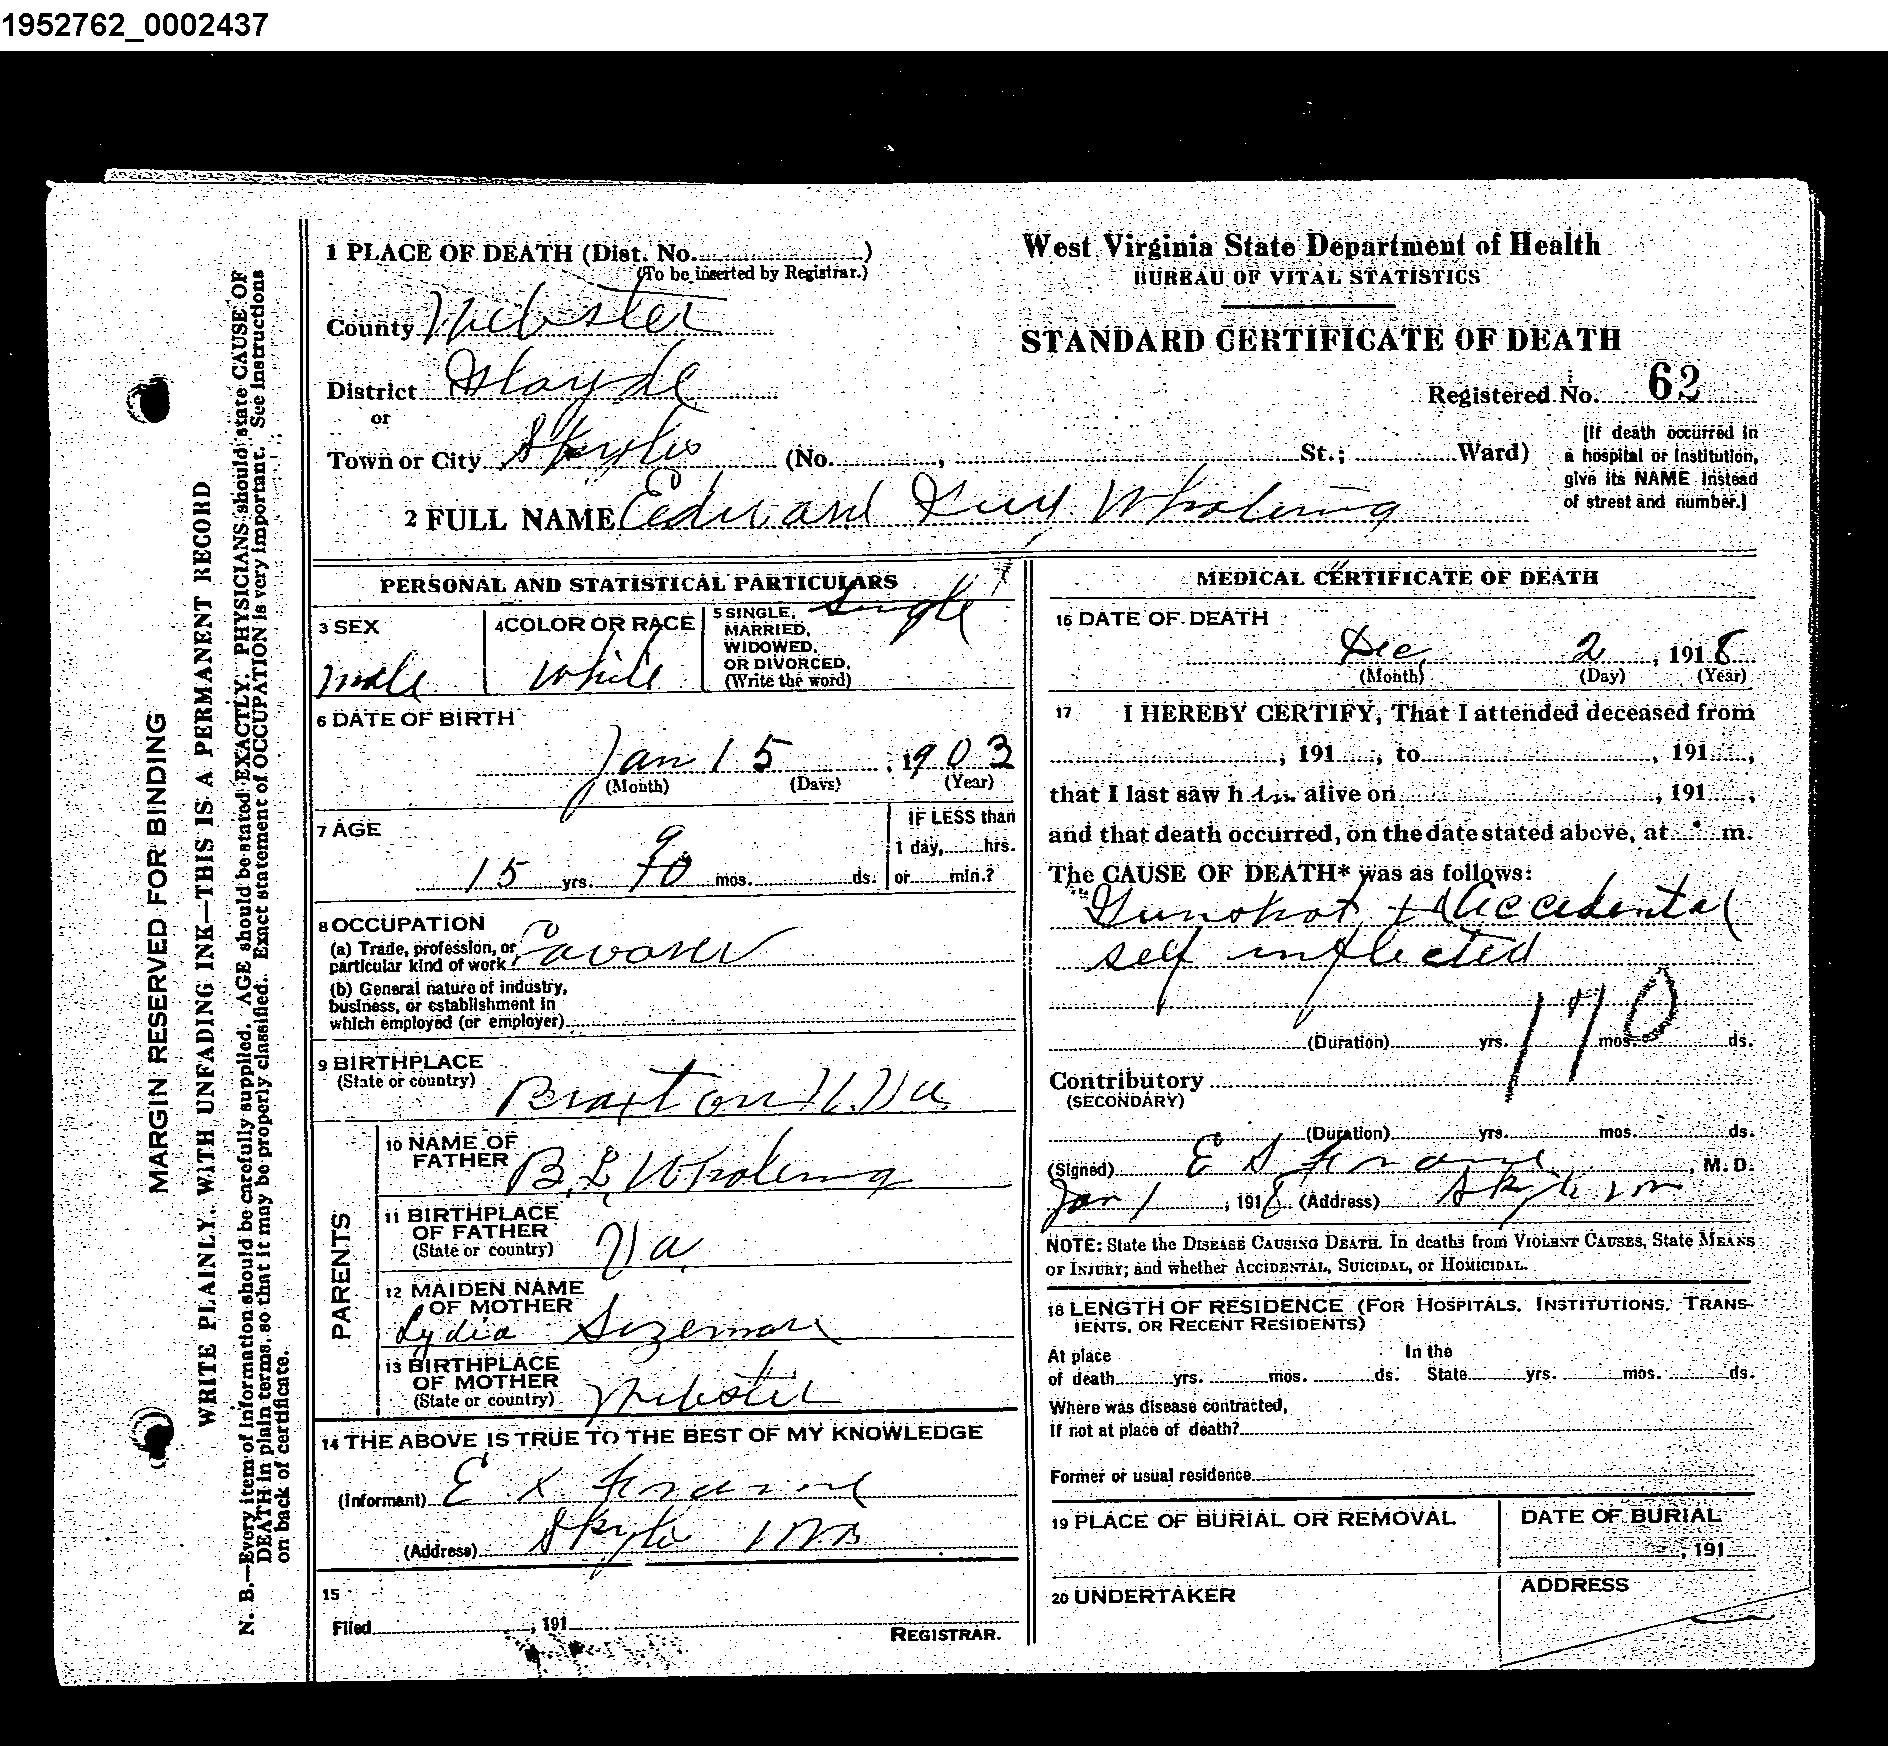 1952762_0002437
MARGIN RESERVED FOR BINDING
WRITE PLAINLY, WITH UNFADING INK—THIS IS A PERMANENT RECORD
N. B.—Every item of information should be carefully supplied. AGE should be stated EXACTLY. PHYSICIANS should state CAUSE OF
DEATH in plain terms, so that it may be properly classified. Exact statement of OCCUPATION is very important. See instructions
on back of certificate.
1 PLACE OF DEATH (Dist. No. )
(To be inserted by Registrar.)
County Webster
District
or
Town or City (No. , St.; Ward)
West Virginia State Department of Health
BUREAU OF VITAL STATISTICS
STANDARD CERTIFICATE OF DEATH
Registered No. 62
[If death occurred in
a hospital or institution,
give its NAME instead
of street and number.]
2 FULL NAME Edward Guy Wholering
PERSONAL AND STATISTICAL PARTICULARS
3 SEX
male
4 COLOR OR RACE
White
5 SINGLE,
MARRIED,
WIDOWED,
OR DIVORCED.
(Write the word)
Single
6 DATE OF BIRTH
Jan 15, 1903
(Month) (Days) (Year)
7 AGE
15 yrs. 9 10 mos. ds.
IF LESS than
1 day, hrs.
or min.?
8 OCCUPATION
(a) Trade, profession, or
particular kind of work
(b) General nature of industry,
business, or establishment in
which employed (or employer)
9 BIRTHPLACE
(State or country) Braxton W. Va
PARENTS
10 NAME OF
FATHER B. L. Wholering
11 BIRTHPLACE
OF FATHER
(State or country) Va.
12 MAIDEN NAME
OF MOTHER
Lydia Sizemore
13 BIRTHPLACE
OF MOTHER
(State or country) Webster
14 THE ABOVE IS TRUE TO THE BEST OF MY KNOWLEDGE
(Informant) E Frame
(Address)
15
Filed , 191
REGISTRAR.
MEDICAL CERTIFICATE OF DEATH
16 DATE OF DEATH
Dec, 2, 1918
(Month) (Day) (Year)
17 I HEREBY CERTIFY, That I attended deceased from
, 191 , to , 191 ,
that I last saw him alive on , 191 ,
and that death occurred, on the date stated above, at m.
The CAUSE OF DEATH* was as follows:
Gunshot Accidental
self inflected
170
(Duration) yrs. mos. ds.
Contributory
(SECONDARY)
(Duration) yrs. mos. ds.
(Signed) E S Frame, M. D.
Jan 1, 1918 (Address)
NOTE: State the DISEASE CAUSING DEATH. In deaths from VIOLENT CAUSES, State MEANS
OF INJURY; and whether ACCIDENTAL, SUICIDAL, or HOMICIDAL.
18 LENGTH OF RESIDENCE (FOR HOSPITALS, INSTITUTIONS, TRANS-
IENTS, OR RECENT RESIDENTS)
At place In the
of death yrs. mos. ds. State yrs. mos. ds.
Where was disease contracted,
If not at place of death?
Former or usual residence
19 PLACE OF BURIAL OR REMOVAL
DATE OF BURIAL
, 191
20 UNDERTAKER
ADDRESS